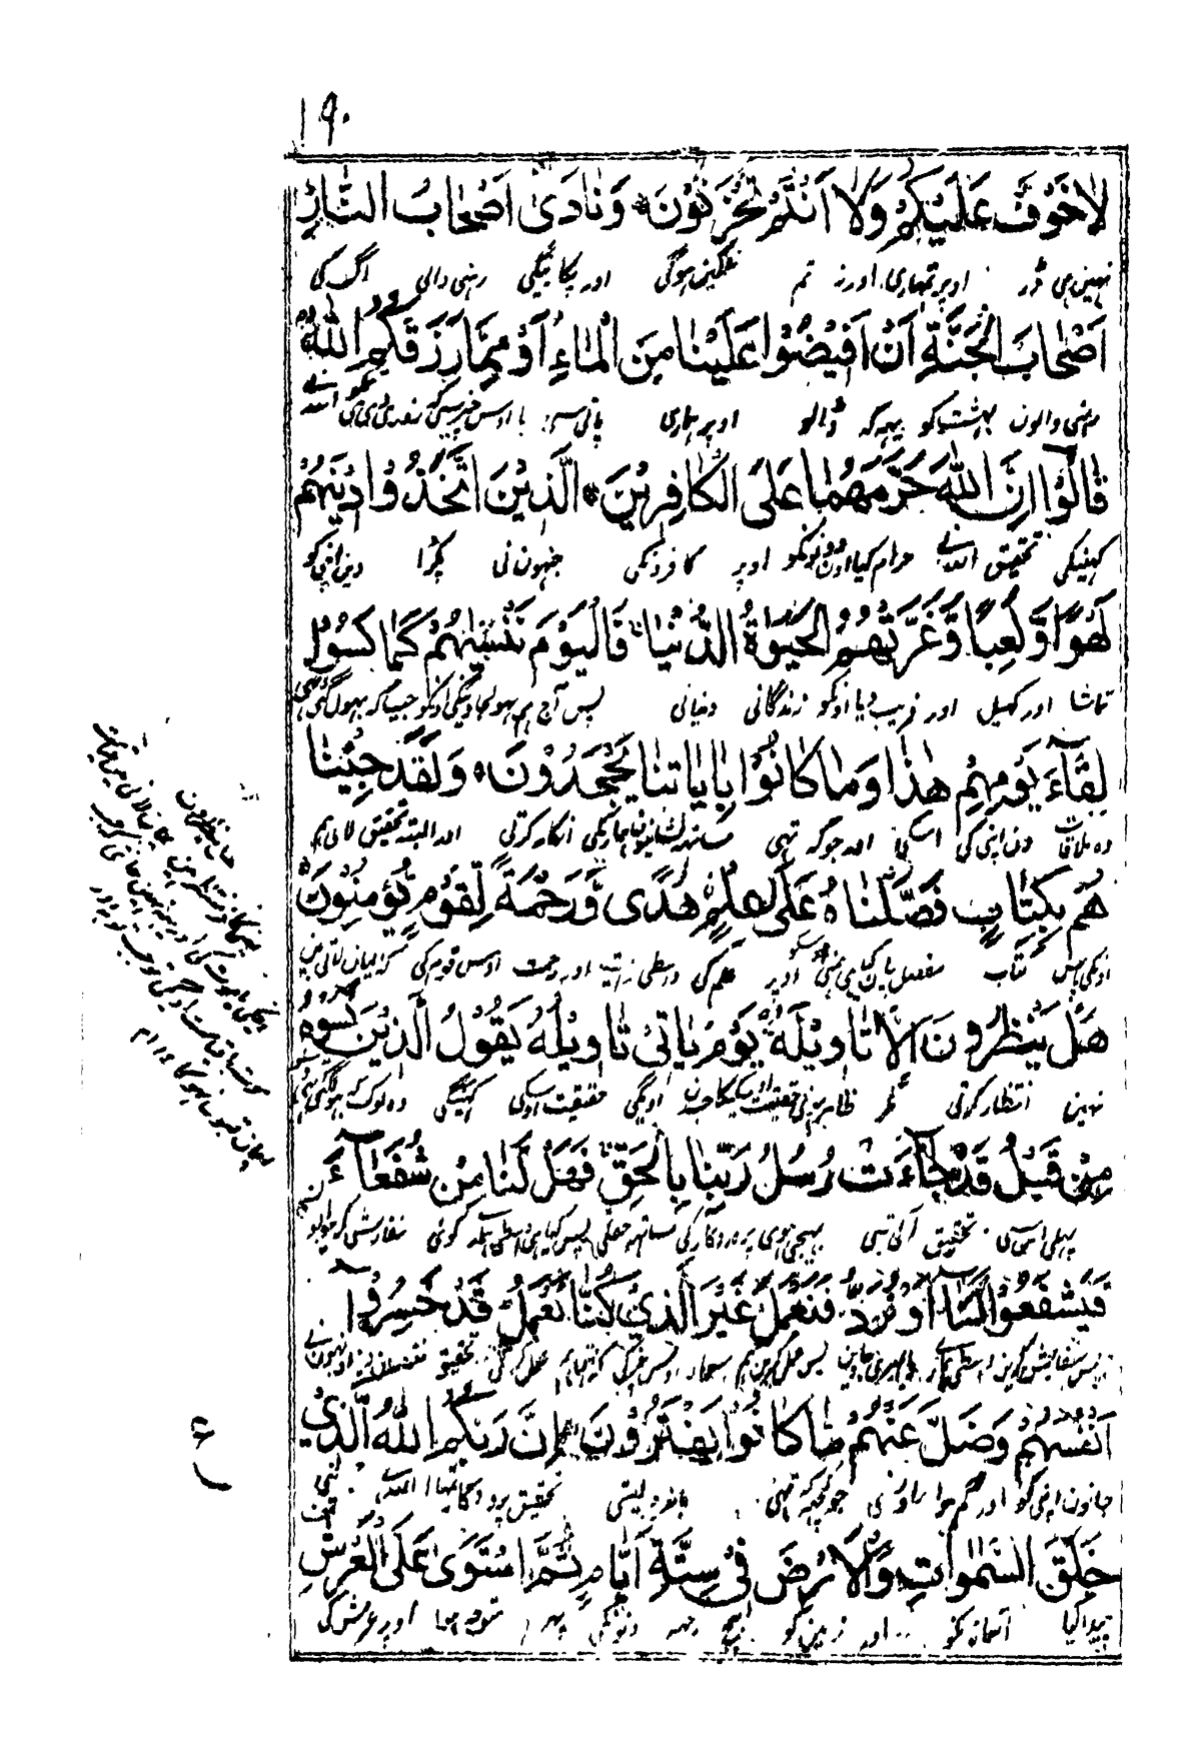 ۱۹۰
لَا خَوْفٌ عَلَيْكُمْ وَلَا اَنْتُمْ تَحْزَنُوْنَ وَنَادَىٰ اَصْحَابُ النَّارِ
نہین ہی ڈر اوپر تمہاری اور نہ تم غمگین ہوگی اور پکارینگی رہنی والی آگ کی
اَصْحَابَ الْجَنَّةِ اَنْ اَفِيْضُوْا عَلَيْنَا مِنَ الْمَاءِ اَوْ مِمَّا رَزَقَكُمُ اللّٰهُ
رہنی والون بہشت کو یہہ کہ ڈالو اوپر ہماری پانی سی یا اوس چیز سی کہ
قَالُوْٓا اِنَّ اللّٰهَ حَرَّمَهُمَا عَلَى الْكَافِرِيْنَ الَّذِيْنَ اتَّخَذُوْا دِيْنَهُمْ
کہینگی تحقیق اللہ نی حرام کیا اون دونونکو اوپر کافرونکی جنہون نی پکڑا دین اپنی کو
لَهْوًا وَّلَعِبًا وَّغَرَّتْهُمُ الْحَيٰوةُ الدُّنْيَا فَالْيَوْمَ نَنْسٰىهُمْ كَمَا نَسُوْا
تماشا اور کھیل اور فریب دیا اونکو زندگانی دنیانی پس آج ہم بھولجاوینگی اونکو جیسا کہ بہول گئی تہی
لِقَآءَ يَوْمِهِمْ هٰذَا وَمَا كَانُوْا بِاٰيَاتِنَا يَجْحَدُوْنَ وَلَقَدْ جِئْنَا
وہ ملاقات دن اپنی کی اسکی اور جو کہ تہی ساتہہ نشانیون ہماریکی انکار کرتی اور البتہ تحقیق لائی ہم
هُمْ بِكِتَابٍ فَصَّلْنَاهُ عَلٰى عِلْمٍ هُدًى وَّرَحْمَةً لِّقَوْمٍ يُّؤْمِنُوْنَ
اونکی پاس کتاب مفصل بیان کیا ہی ہمنی اوسکو اوپر علم کی واسطی ہدایت اور رحمت اوس قوم کی کہ ایمان لاتی ہین
هَلْ يَنْظُرُوْنَ اِلَّا تَاْوِيْلَهٗ يَوْمَ يَاْتِيْ تَاْوِيْلُهٗ يَقُوْلُ الَّذِيْنَ نَسُوْهُ
نہین انتظار کرتی مگر ظاہر ہونی حقیقت اوسکیکا جسدن آویگی حقیقت اوسکی کہینگی وہ لوگ کہ بہول گئی تہی
مِنْ قَبْلُ قَدْ جَآءَتْ رُسُلُ رَبِّنَا بِالْحَقِّ فَهَلْ لَّنَا مِنْ شُفَعَآءَ
پہلی اس سی تحقیق آئی تہی بہیجی ہوی پروردگار کی ساتہہ حق کی پس کیا ہی واسطی ہماری کوئی سفارش کرنیوالو
فَيَشْفَعُوْا لَنَآ اَوْ نُرَدُّ فَنَعْمَلَ غَيْرَ الَّذِيْ كُنَّا نَعْمَلُ قَدْ خَسِرُوْٓا
پس سفارش کرین واسطی ہماری یا پہیری جاوین پس عمل کرین ہم سوای اوس چیز کی کہ تہی ہم عمل کرتی تحقیق نقصان دیا اونہون نے
اَنْفُسَهُمْ وَضَلَّ عَنْهُمْ مَا كَانُوْا يَفْتَرُوْنَ اِنَّ رَبَّكُمُ اللّٰهُ الَّذِيْ
جانون اپنی کو اور گم ہوا اون سی جو کچہہ کہ تہی باندہ لیتی تحقیق پروردگار تمہارا اللہ ہی جسنی
خَلَقَ السَّمٰوَاتِ وَالْاَرْضَ فِيْ سِتَّةِ اَيَّامٍ ثُمَّ اسْتَوٰى عَلَى الْعَرْشِ
پیدا کیا آسمانونکو اور زمین کو بیچ چہہ دنونکی پہر متوجہ ہوا اوپر عرش کی